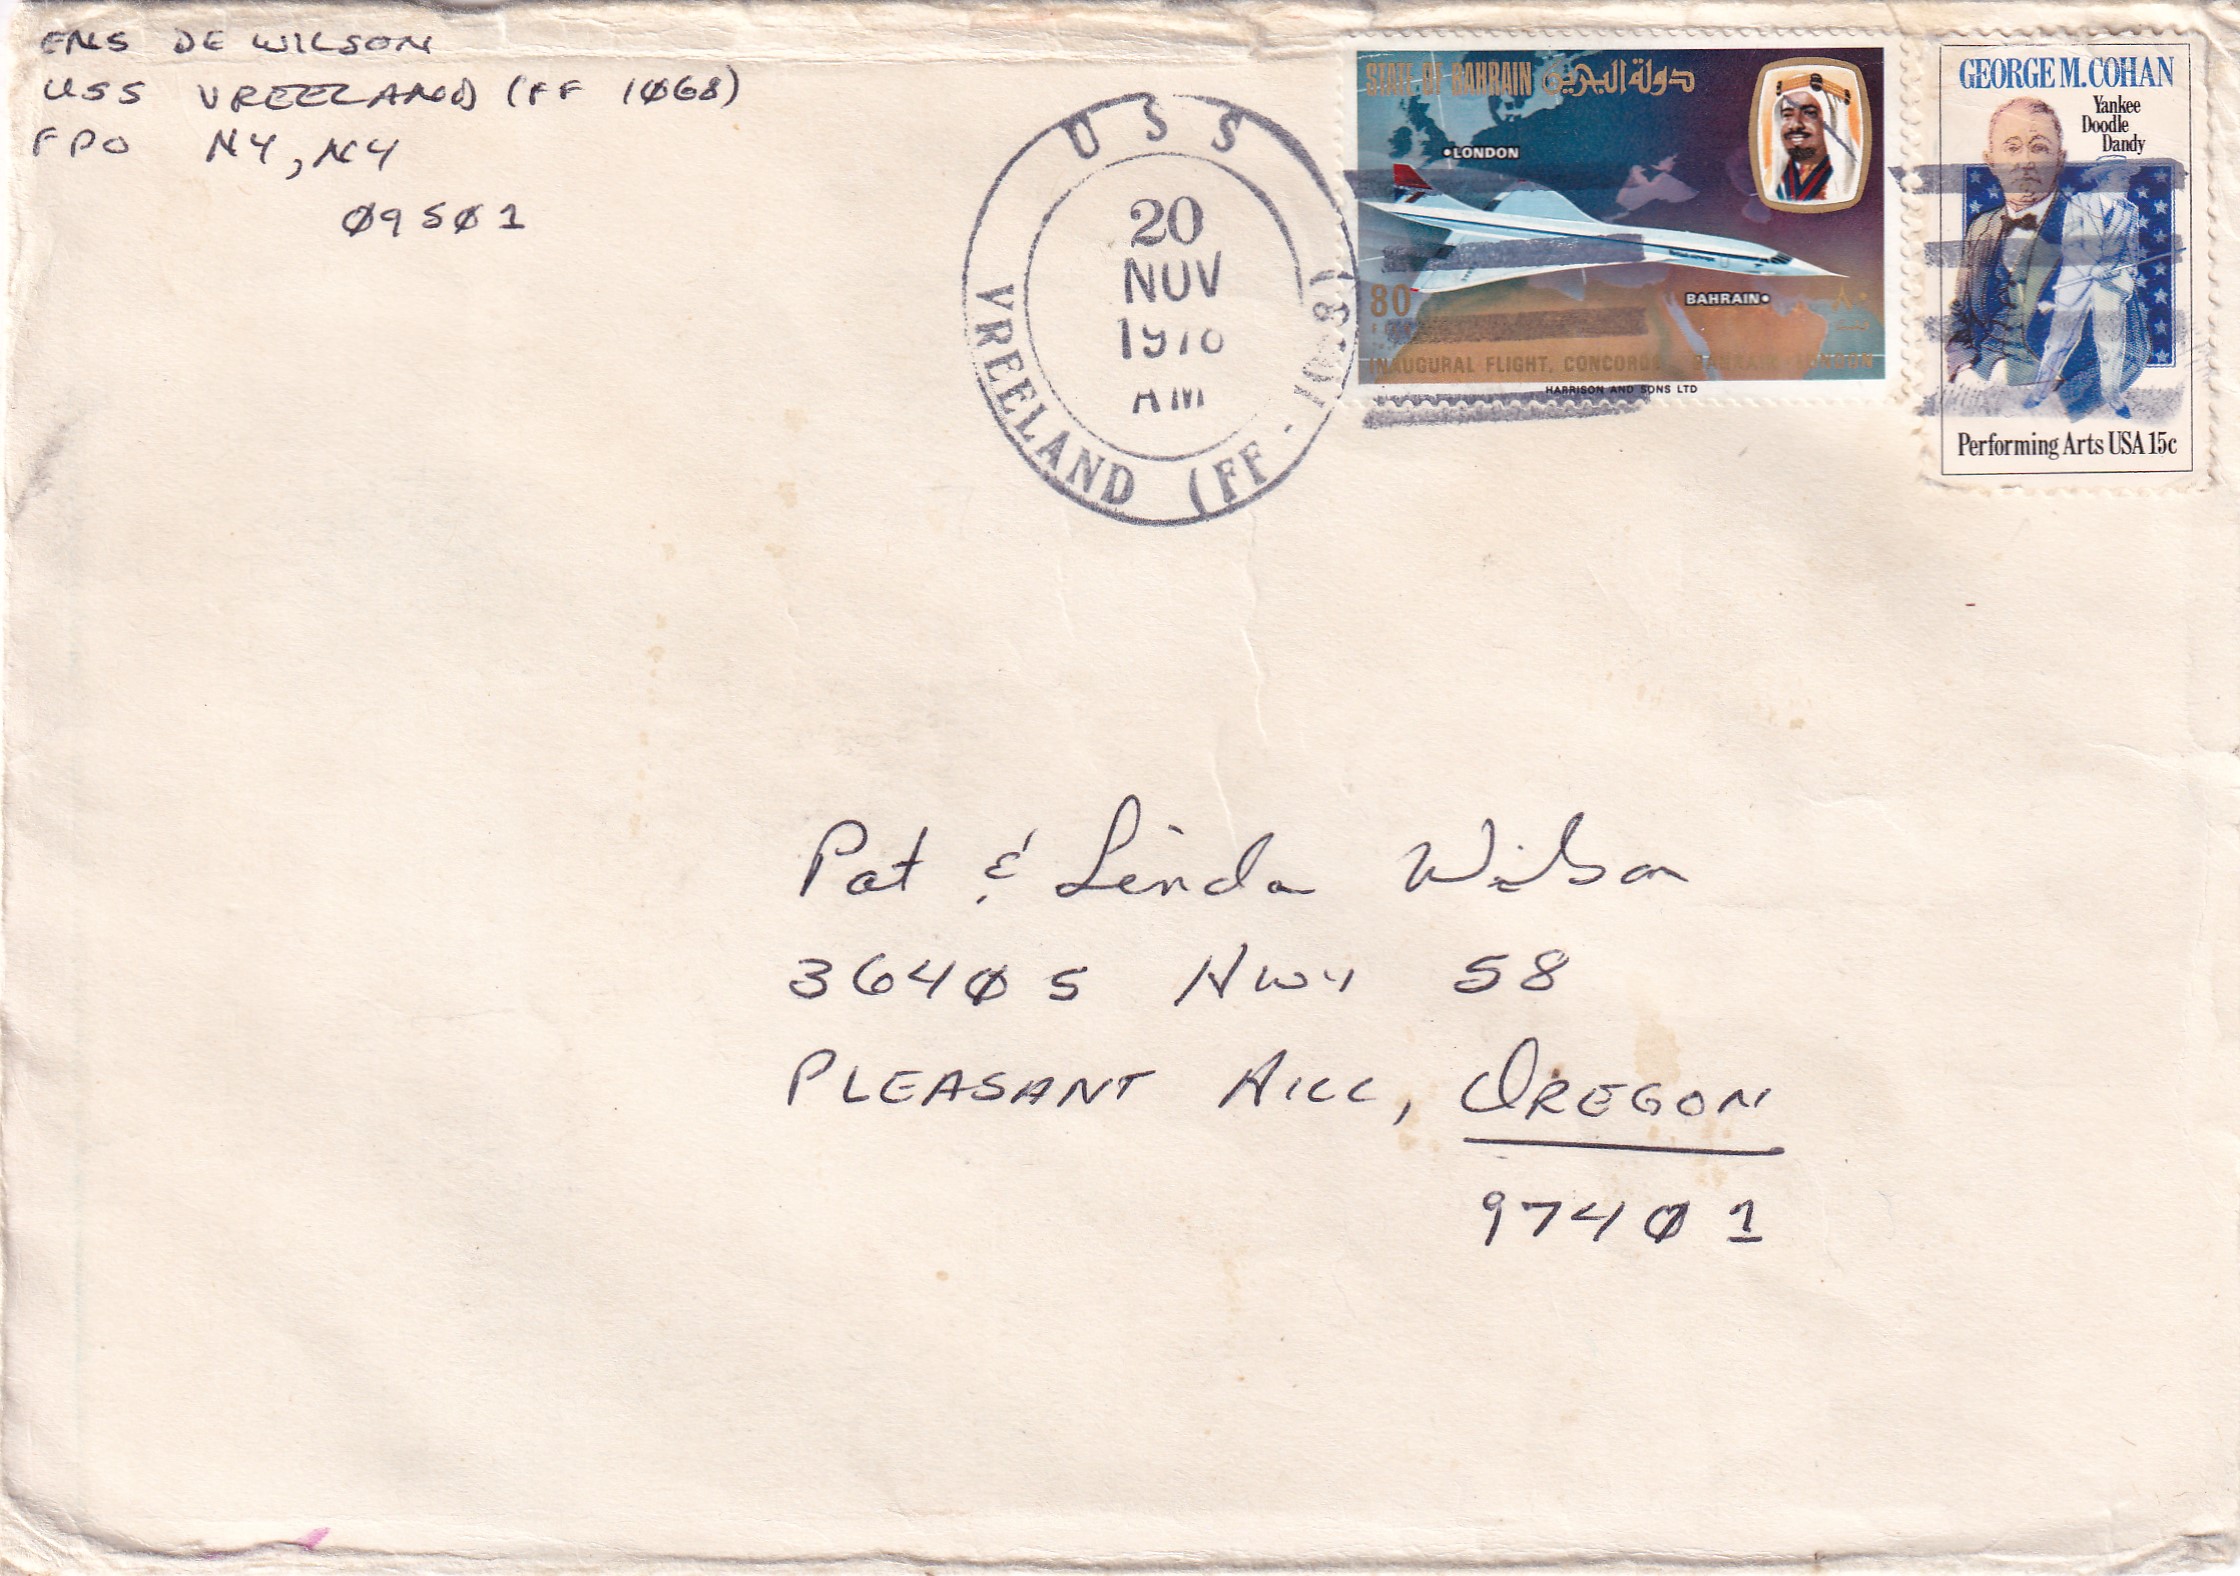 ENS DE WILSON
USS VREELAND (FF 1068)
FPO NY, NY
09501
USS
VREELAND (FF-1068)
20
NOV
AM
STATE OF BAHRAIN دولة البحرين
LONDON
BAHRAIN
80
٨٠
INAUGURAL FLIGHT, CONCORDE BAHRAIN - LONDON
HARRISON AND SONS LTD
GEORGE M. COHAN
Yankee
Doodle
Dandy
Performing Arts USA 15c
Pat & Linda Wilson
36405 HWY 58
PLEASANT HILL, OREGON
97401